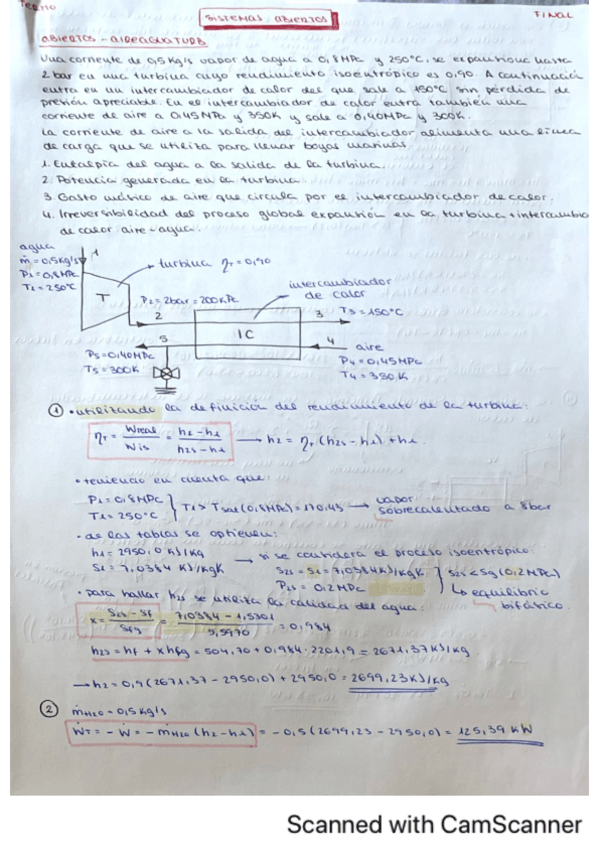 TERMO
SISTEMAS ABIERTOS
FINAL
ABIERTOS - AIREAGUATURB
Una corriente de 0,5 Kg/s vapor de agua a 0,8 MPa y 250°C, se expansiona hasta
2 bar en una turbina cuyo rendimiento isoentrópico es 0,90. A continuación
entra en un intercambiador de calor del que sale a 150°C sin pérdida de
presión apreciable. En el intercambiador de calor entra también una
corriente de aire a 0,45 MPa y 350K y sale a 0,40 MPa y 300K.
La corriente de aire a la salida del intercambiador alimenta una línea
de carga que se utiliza para llenar boyas marinas.
1. Entalpía del agua a la salida de la turbina.
2. Potencia generada en la turbina.
3. Gasto másico de aire que circula por el intercambiador de calor.
4. Irreversibilidad del proceso global expansión en la turbina + intercambio
de calor aire-agua.
agua
ṁ = 0,5Kg/s
P1 = 0,8MPa
T1 = 250°C
1
T
turbina ηT = 0,90
P2 = 2bar = 200KPa
2
intercambiador
de calor
IC
3
T3 = 150°C
5
P5 = 0,40MPa
T5 = 300K
4
aire
P4 = 0,45MPa
T4 = 350K
① • utilizando la definición del rendimiento de la turbina:
ηT = Wreal / Wis = h2 - h1 / h2s - h1 → h2 = ηT (h2s - h1) + h1.
• teniendo en cuenta que:
P1 = 0,8MPa
T1 = 250°C } T1 > Tsat (0,8MPa) = 170,43 → vapor
sobrecalentado a 8bar
• de las tablas se obtienen:
h1 = 2950,0 KJ/Kg
S1 = 7,0384 KJ/KgK
→ si se considera el proceso isoentrópico:
S2s = S1 = 7,0384 KJ/KgK
P2s = 0,2MPa
} S2s < Sg (0,2MPa)
↳ equilibrio
bifásico.
• para hallar h2s se utiliza la calidad del agua:
x = S2s - Sf / Sfg = 7,0384 - 1,5301 / 5,5970 = 0,984
h2s = hf + x hfg = 504,70 + 0,984 · 2201,9 = 2671,37 KJ/Kg.
→ h2 = 0,9 (2671,37 - 2950,0) + 2950,0 = 2699,23 KJ/Kg
② ṁH2O = 0,5 Kg/s
ẆT = - Ẇ = - ṁH2O (h2 - h1) = - 0,5 (2699,23 - 2950,0) = 125,39 KW
Scanned with CamScanner